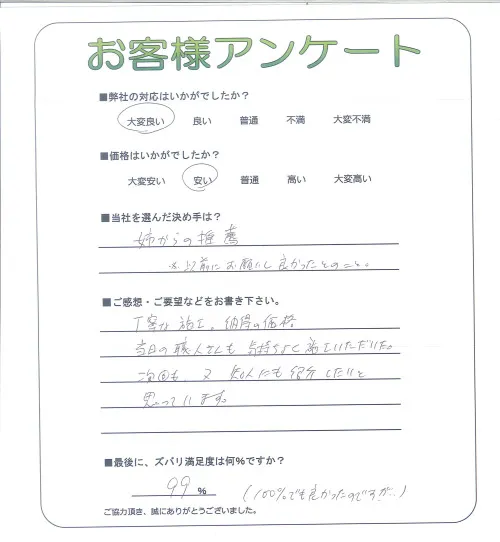 お客様アンケート
■弊社の対応はいかがでしたか？
大変良い 良い 普通 不満 大変不満
■価格はいかがでしたか？
大変安い 安い 普通 高い 大変高い
■当社を選んだ決め手は？
姉からの推薦
※以前にお願いし良かったとのこと。
■ご感想・ご要望などをお書き下さい。
丁寧な施工。納得の価格
当日の職人さんも気持ちよく施工いただいた。
次回も、又知人にも紹介したいと
思っています。
■最後に、ズバリ満足度は何％ですか？
99 %
(100%でも良かったのですが…)
ご協力頂き、誠にありがとうございました。